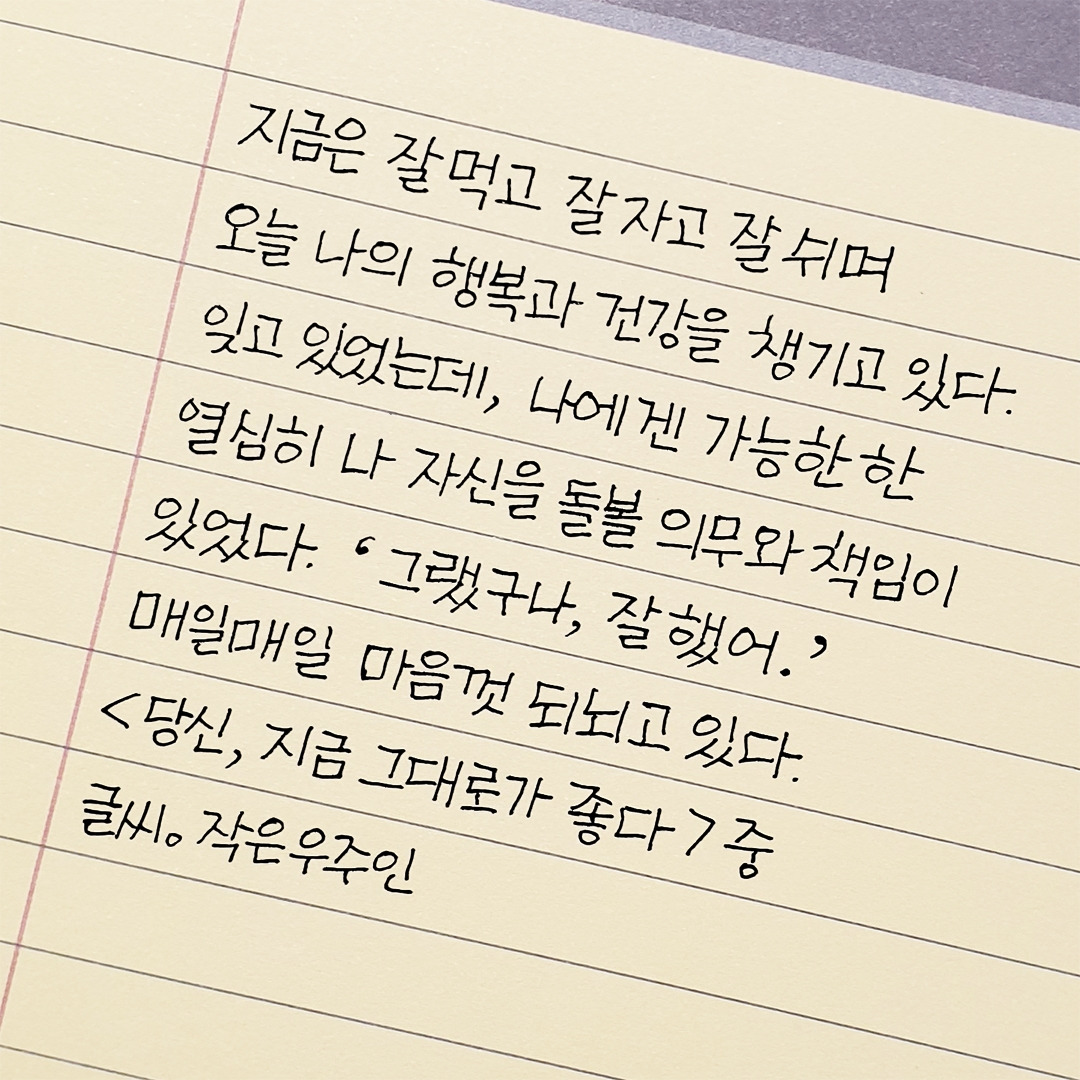 지금은 잘 먹고 잘 자고 잘 쉬며
오늘 나의 행복과 건강을 챙기고 있다.
잊고 있었는데, 나에겐 가능한 한
열심히 나 자신을 돌볼 의무와 책임이
있었다. ‘그랬구나, 잘했어.’
매일매일 마음껏 되뇌고 있다.
<당신, 지금 그대로가 좋다> 중
글씨。작은우주인